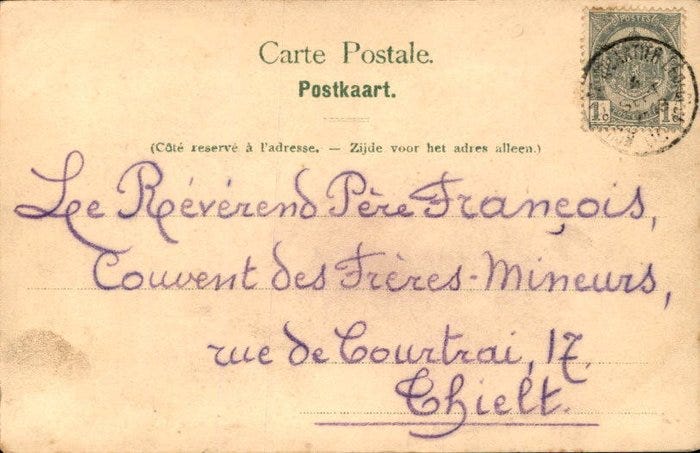 Carte Postale.
Postkaart.
(Côté reservé à l'adresse. — Zijde voor het adres alleen.)
Le Révérend Père François,
Couvent des Frères-Mineurs,
rue de Courtrai, 17,
Thielt.
POSTES
1